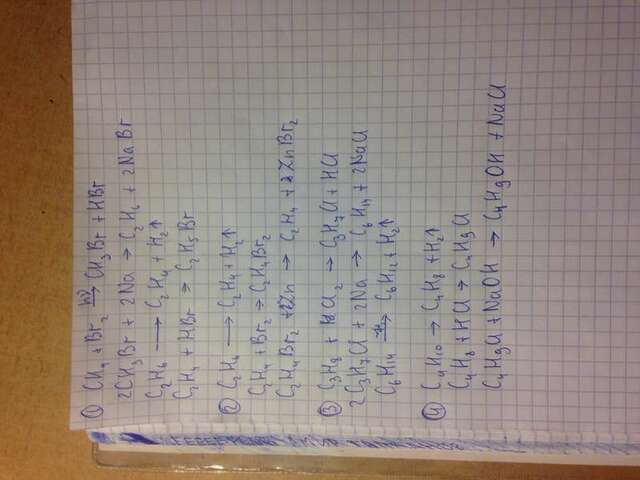 ① CH₄ + Br₂ —hν→ CH₃Br + HBr
2CH₃Br + 2Na → C₂H₆ + 2NaBr
C₂H₆ ⟶ C₂H₄ + H₂↑
C₂H₄ + HBr → C₂H₅Br
② C₂H₆ ⟶ C₂H₄ + H₂↑
C₂H₄ + Br₂ → C₂H₄Br₂
C₂H₄Br₂ + Zn → C₂H₄ + ZnBr₂
③ C₃H₈ + Cl₂ → C₃H₇Cl + HCl
2C₃H₇Cl + 2Na → C₆H₁₄ + 2NaCl
C₆H₁₄ → C₆H₁₂ + H₂↑
④ C₄H₁₀ → C₄H₈ + H₂↑
C₄H₈ + HCl → C₄H₉Cl
C₄H₉Cl + NaOH → C₄H₉OH + NaCl